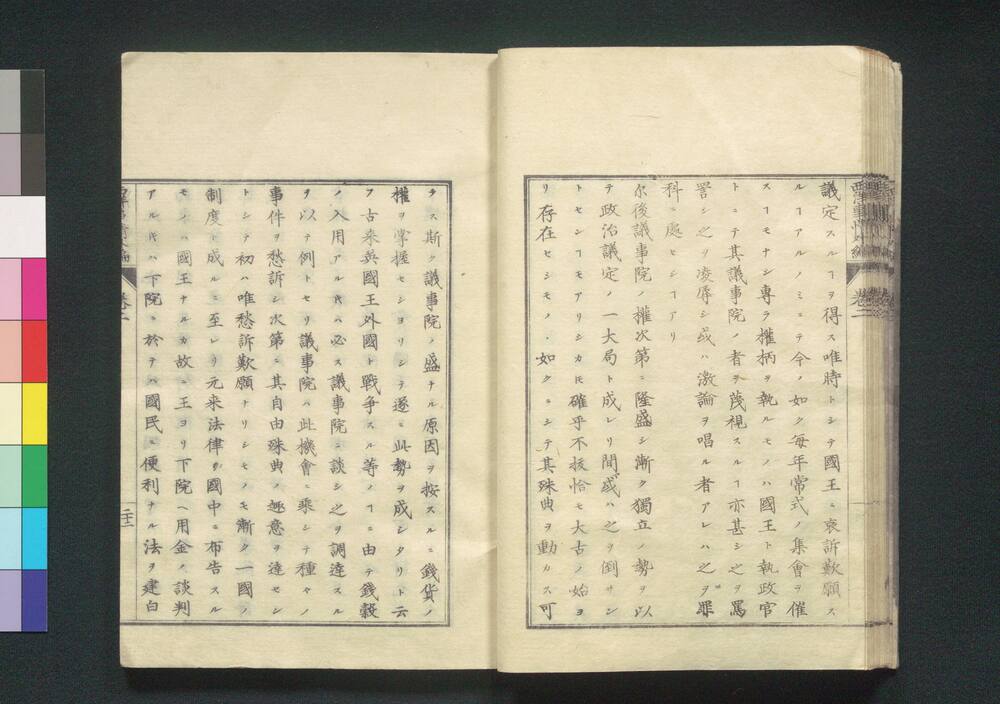 議定スルヿヲ得ス唯時トシテ國王ニ哀訴歎願ス
ルヿアルノミニテ今ノ如ク毎年常式ノ集會ヲ催
スヿモナシ専ラ權柄ヲ執ルモノハ國王ト執政官
トニテ其議事院ノ者ヲ蔑視スルヿ亦甚シ之ヲ罵
詈シ之ヲ凌辱シ或ハ激論ヲ唱ル者アレハ之ヲ罪
科ニ處セシヿアリ
尓後議事院ノ權次第ニ隆盛シ漸ク獨立ノ勢ヲ以
テ政治議定ノ一大局ト成レリ間或ハ之ヲ倒サン
トセシヿモアリシカ𪜈確乎不拔恰モ大古ノ始ヨ
リ存在セシモノヽ如クニシテ其殊典ヲ動カス可
ラス斯ク議事院ノ盛ナル原因ヲ按スルニ錢貨ノ
權ヲ掌握セシヨリシテ遂ニ此勢ヲ成シタリト云
フ古来英國王外國ト戰爭スル等ノヿニ由テ錢穀
ノ入用アル𪜈ハ必ス議事院ニ談シ之ヲ調達スル
ヲ以テ例トセリ議事院ハ此機會ニ乘シテ種々ノ
事件ヲ愁訴シ次第ニ其自由殊典ノ趣意ヲ達セン
トシテ初ハ唯愁訴歎願ナリシモノモ漸ク一國ノ
制度ト成ルニ至レリ元来法律ヲ國中ニ布告スル
モノハ國王ナルカ故ニ王ヨリ下院ヘ用金ノ談判
アル𪜈ハ下院ニ於テハ國民ニ便利ナル法ヲ建白
卷二
二十二